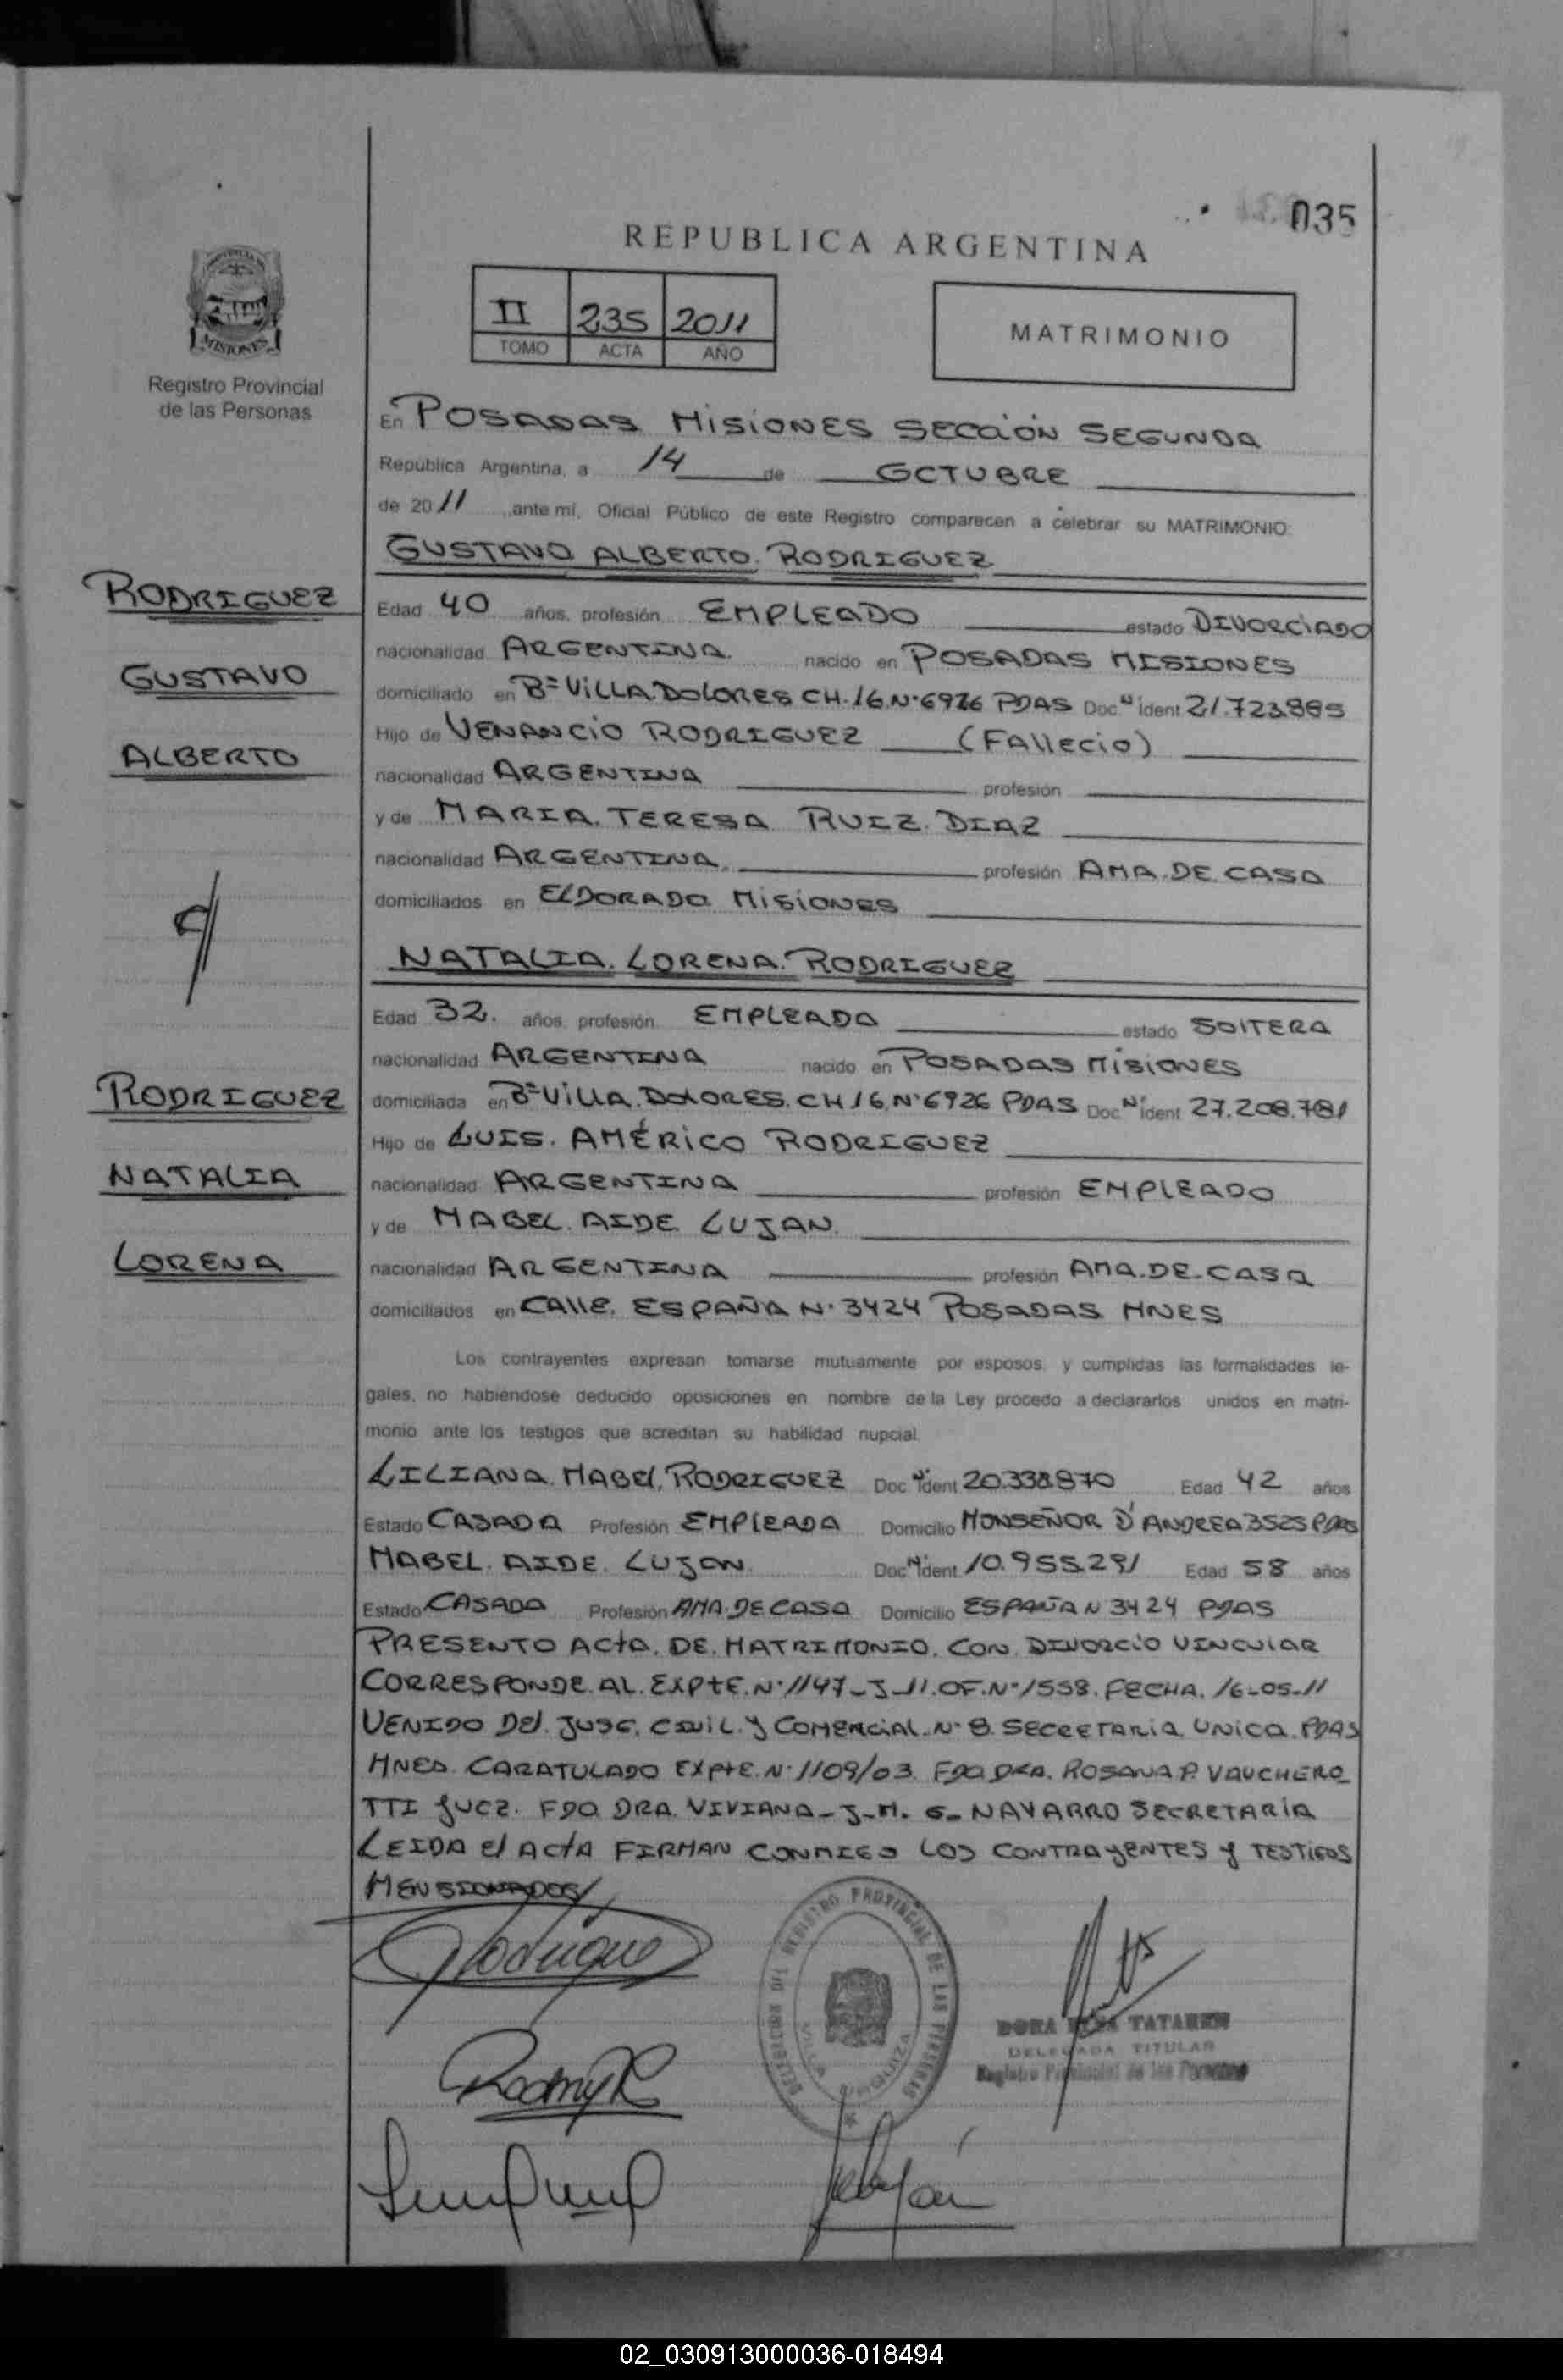 035
REPUBLICA ARGENTINA
II 235 2011
TOMO ACTA AÑO
MATRIMONIO
MISIONES
Registro Provincial
de las Personas
En POSADAS MISIONES SECCIÓN SEGUNDA
República Argentina, a 14 de OCTUBRE
de 2011 ante mí, Oficial Público de este Registro comparecen a celebrar su MATRIMONIO:
GUSTAVO ALBERTO. RODRIGUEZ
RODRIGUEZ
GUSTAVO
ALBERTO
Edad 40 años, profesión EMPLEADO estado DIVORCIADO
nacionalidad ARGENTINA. nacido en POSADAS MISIONES
domiciliado en Bº VILLA DOLORES CH.16.Nº6926 PDAS Doc Nº ident 21.723.885
Hijo de VENANCIO RODRIGUEZ (FALLECIO)
nacionalidad ARGENTINA profesión
y de MARIA. TERESA RUIZ. DIAZ
nacionalidad ARGENTINA. profesión AMA.DE.CASA
domiciliados en ELDORADO MISIONES
NATALIA. LORENA. RODRIGUEZ
Edad 32. años, profesión EMPLEADA estado SOLTERA
nacionalidad ARGENTINA nacido en POSADAS MISIONES
RODRIGUEZ
NATALIA
LORENA
domiciliada en Bº VILLA. DOLORES. CH16.Nº6926 PDAS Doc Nº ident 27.208.781
Hijo de LUIS. AMÉRICO RODRIGUEZ
nacionalidad ARGENTINA profesión EMPLEADO
y de MABEL. AIDE LUJAN.
nacionalidad ARGENTINA profesión AMA.DE.CASA
domiciliados en CALLE. ESPAÑA Nº 3424 POSADAS MNES
Los contrayentes expresan tomarse mutuamente por esposos, y cumplidas las formalidades le-
gales, no habiéndose deducido oposiciones en nombre de la Ley procedo a declararlos unidos en matri-
monio ante los testigos que acreditan su habilidad nupcial.
LILIANA. MABEL. RODRIGUEZ Doc Nº ident 20.338.870 Edad 42 años
Estado CASADA Profesión EMPLEADA Domicilio MONSEÑOR D'ANDREA 3525 PDAS
MABEL. AIDE. LUJAN. Doc Nº ident 10.955.291 Edad 58 años
Estado CASADA Profesión AMA.DE CASA Domicilio ESPAÑA N 3424 PDAS
PRESENTO ACTA. DE. MATRIMONIO. CON. DIVORCIO VINCULAR
CORRESPONDE. AL. EXPTE. Nº 1147-J-11. OF. Nº 1558. FECHA. 16-05-11
VENIDO DEL. JUZG. CIVIL. Y COMERCIAL. Nº 8. SECRETARIA. UNICA. PDAS
MNES. CARATULADO EXPTE. Nº 1109/03. FDO DRA. ROSANA P. VAUCHERO
TTI JUEZ. FDO DRA. VIVIANA-J-M. G- NAVARRO SECRETARIA
LEIDA EL ACTA FIRMAN CONMIGO LOS CONTRAYENTES Y TESTIGOS
MENSIONADOS
DELEGACION DEL REGISTRO PROVINCIAL DE LAS PERSONAS
DORA TATAREN
DELEGADA TITULAR
Registro Provincial de las Personas
02_030913000036-018494